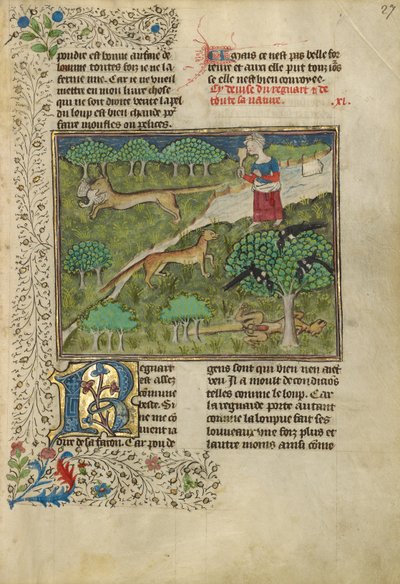 27
pondre est bonne autine de
lomme toutes foiz ie ne la
ferme mie. Car ie ne vueil
mettre en mon liure chose
qui ne soit droite verite la pel
du loup est bien chaude po
faire moufles ou pelices.
Mais ce nest pas belle for
reure et aussi elle put touz iōs
se elle nest bien conroyee.
Cy deuise du regnart et de
toute sa nature. .xi.
Regnart
est assez
cōmune
beste. Si
ne me cō
uient ia
dire de sa facon. Car pou de
gens sont qui bien nen aiet
veu. Il a moult de condiciōs
telles comme le loup. Car
la regnarde porte autant
comme la loupue fait ses
louueaux vne foiz plus et
lautre moins ainsi cōme